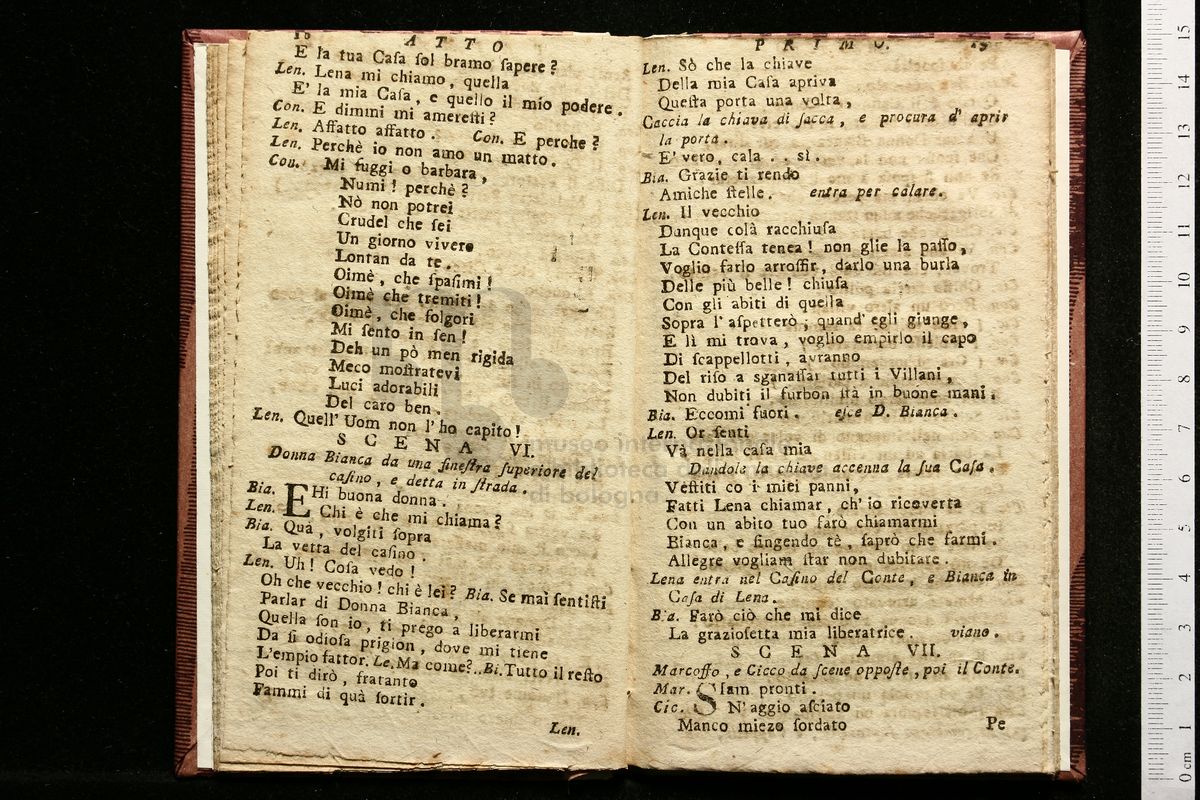 18 ATTO
E la tua Caſa ſol bramo ſapere?
Len. Lena mi chiamo, quella
E' la mia Caſa, e quello il mio podere.
Con. E dimmi mi amereſti?
Len. Affatto affatto. Con. E perche?
Len. Perchè io non amo un matto.
Con. Mi fuggi o barbara,
Numi! perchè?
Nò non potrei
Crudel che ſei
Un giorno vivere
Lontan da te.
Oimè, che ſpaſimi!
Oimè che tremiti!
Oimè, che folgori
Mi ſento in ſen!
Deh un pò men rigida
Meco moſtratevi
Luci adorabili
Del caro ben.
Len. Quell' Uom non l' ho capito!
SCENA VI.
Donna Bianca da una fineſtra ſuperiore del
caſino, e detta in ſtrada.
Bia. EHi buona donna.
Len. Chi è che mi chiama?
Bia. Quà, volgiti ſopra
La vetta del caſino.
Len. Uh! Coſa vedo!
Oh che vecchio! chi è lei? Bia. Se mai ſentiſti
Parlar di Donna Bianca,
Quella ſon io, ti prego a liberarmi
Da ſi odioſa prigion, dove mi tiene
L'empio fattor. Le. Ma come?.. Bi. Tutto il reſto
Poi ti dirò, fratanto
Fammi di quà ſortir.
Len.
PRIMO. 19
Len. Sò che la chiave
Della mia Caſa apriva
Queſta porta una volta,
Caccia la chiava di ſacca, e procura d' aprir
la porta.
E' vero, cala .. sì.
Bia. Grazie ti rendo
Amiche ſtelle. entra per calare.
Len. Il vecchio
Dunque colà racchiuſa
La Conteſſa tenea! non glie la paſſo,
Voglio farlo arroſſir, darlo una burla
Delle più belle! chiuſa
Con gli abiti di quella
Sopra l' aſpetterò; quand' egli giunge,
E lì mi trova, voglio empirlo il capo
Di ſcappellotti, avranno
Del riſo a sganaſſar tutti i Villani,
Non dubiti il furbon ſtà in buone mani.
Bia. Eccomi fuori. eſce D. Bianca.
Len. Or ſenti
Và nella caſa mia
Dandole la chiave accenna la ſua Caſa.
Veſtiti co i miei panni,
Fatti Lena chiamar, ch' io ricoverta
Con un abito tuo farò chiamarmi
Bianca, e fingendo tè, ſaprò che farmi.
Allegre vogliam ſtar non dubitare.
Lena entra nel Caſino del Conte, e Bianca in
Caſa di Lena.
Bia. Farò ciò che mi dice
La grazioſetta mia liberatrice. viano.
SCENA VII.
Marcoffo, e Cicco da ſcene oppoſte, poi il Conte.
Mar. SIam pronti.
Cic. N' aggio aſciato
Manco miezo ſordato
Pe
museo
di bologna
15
14
13
12
11
10
9
8
7
6
5
4
3
2
1
0 cm